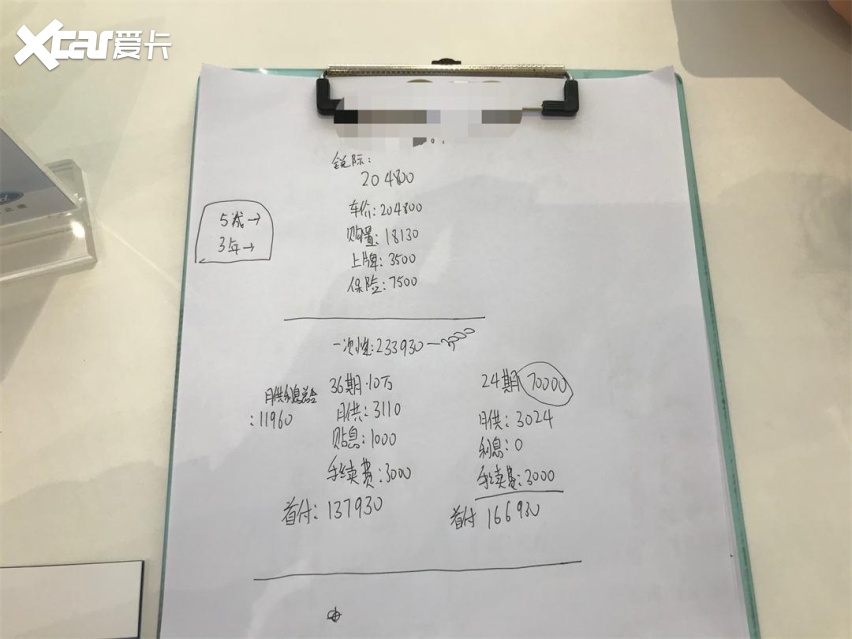 Xcar爱卡
锐际:
204800
5成→
3年→
车价:204800
购置:18130
上牌:3500
保险:7500
一次性:233930
月供利息总合
:11960
36期·10万
月供:3110
贴息:1000
手续费:3000
首付:137930
24期 70000
月供:3024
利息:0
手续费:3000
首付 166930